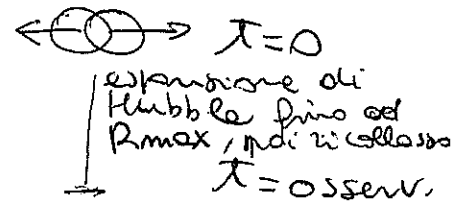 t=0
espansione di
Hubble fino ad
Rmax, poi ricollasso
t=osserv.